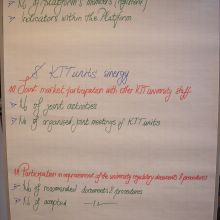 No of platform's members (regiment)
Indicators within the Platform
8 KTT units energy
Joint market participation with other KTT university staff
No of joint activities
No of organised joint meetings of KTT units
Participation in improvement of the university regulatory documents & procedures
No of recommended documents & procedures
No of adopted —"—